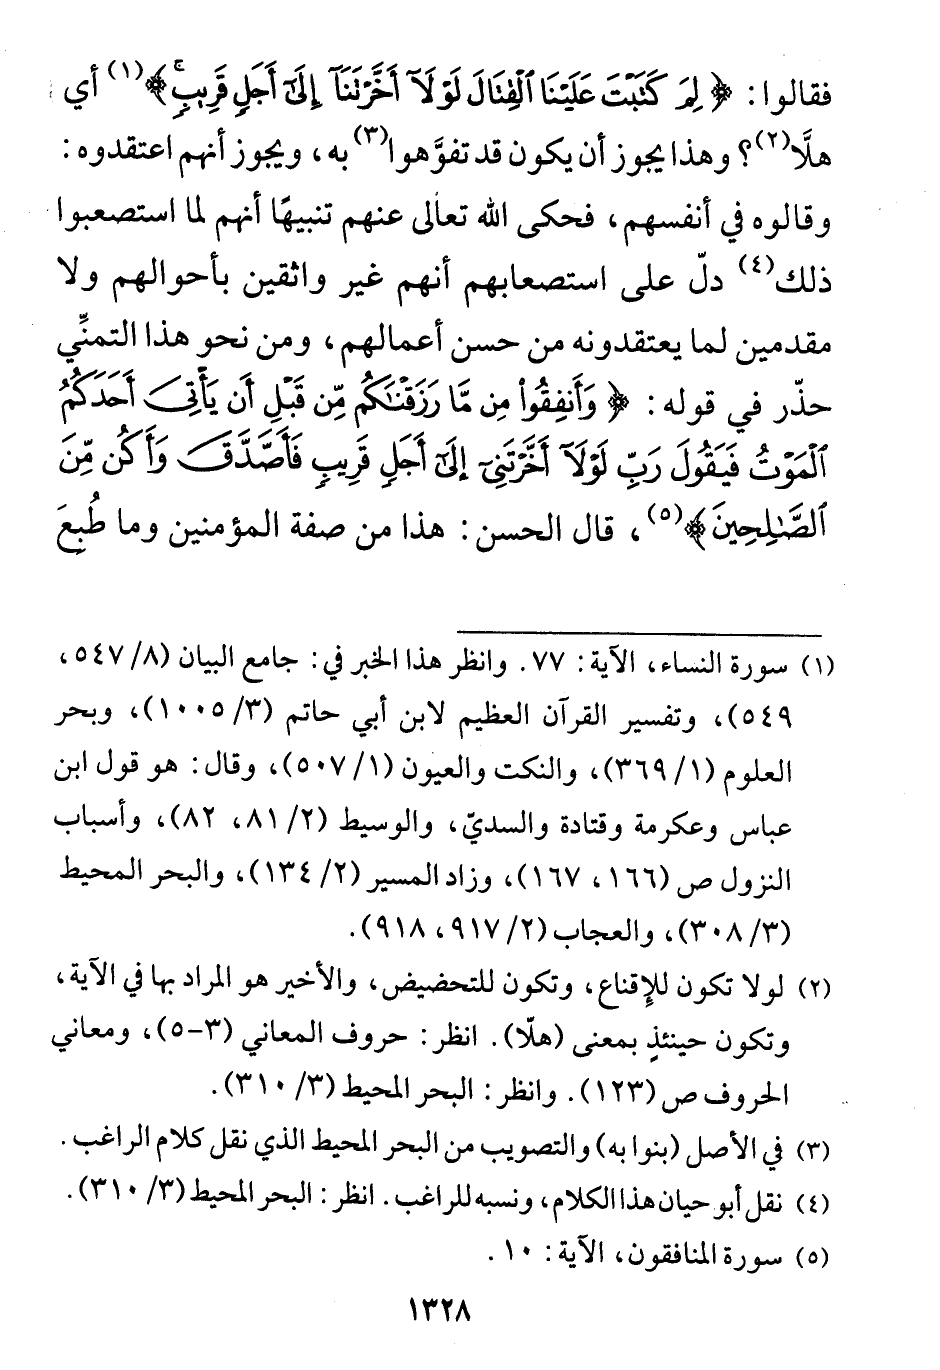 فقالوا: ﴿ لِمَ كَتَبْتَ عَلَيْنَا الْقِتَالَ لَوْلَآ أَخَّرْتَنَآ إِلَىٰٓ أَجَلٍ قَرِيبٍ ﴾(١) أي
هلَّا(٢)؟ وهذا يجوز أن يكون قد تفوَّهوا(٣) به، ويجوز أنهم اعتقدوه:
وقالوه في أنفسهم، فحكى الله تعالى عنهم تنبيهًا أنهم لما استصعبوا
ذلك(٤) دلّ على استصعابهم أنهم غير واثقين بأحوالهم ولا
مقدمين لما يعتقدونه من حسن أعمالهم، ومن نحو هذا التمنِّي
حذّر في قوله: ﴿ وَأَنفِقُوا۟ مِن مَّا رَزَقْنَٰكُم مِّن قَبْلِ أَن يَأْتِىَ أَحَدَكُمُ
الْمَوْتُ فَيَقُولَ رَبِّ لَوْلَآ أَخَّرْتَنِىٓ إِلَىٰٓ أَجَلٍ قَرِيبٍ فَأَصَّدَّقَ وَأَكُن مِّنَ
الصَّٰلِحِينَ ﴾(٥)، قال الحسن: هذا من صفة المؤمنين وما طُبِعَ
(١) سورة النساء، الآية: ٧٧. وانظر هذا الخبر في: جامع البيان (٨/ ٥٤٧،
٥٤٩)، وتفسير القرآن العظيم لابن أبي حاتم (٣/ ١٠٠٥)، وبحر
العلوم (١/ ٣٦٩)، والنكت والعيون (١/ ٥٠٧)، وقال: هو قول ابن
عباس وعكرمة وقتادة والسديّ، والوسيط (٢/ ٨١، ٨٢)، وأسباب
النزول ص (١٦٦، ١٦٧)، وزاد المسير (٢/ ١٣٤)، والبحر المحيط
(٣/ ٣٠٨)، والعجاب (٢/ ٩١٧، ٩١٨).
(٢) لولا تكون للإقناع، وتكون للتحضيض، والأخير هو المراد بها في الآية،
وتكون حينئذٍ بمعنى (هلّا). انظر: حروف المعاني (٣-٥)، ومعاني
الحروف ص (١٢٣). وانظر: البحر المحيط (٣/ ٣١٠).
(٣) في الأصل (بنوا به) والتصويب من البحر المحيط الذي نقل كلام الراغب.
(٤) نقل أبو حيان هذا الكلام، ونسبه للراغب. انظر: البحر المحيط (٣/ ٣١٠).
(٥) سورة المنافقون، الآية: ١٠.
١٣٢٨